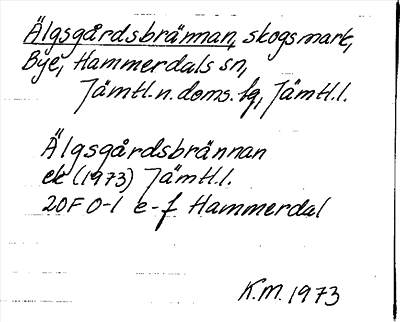 Älgsgårdsbrännan, skogsmark,
Bye, Hammerdals sn,
Jämtl.n.doms.fg, Jämtl.l.
Älgsgårdsbrännan
ek (1973) Jämtl.l.
20F 0-1 e-f Hammerdal
K.M. 1973